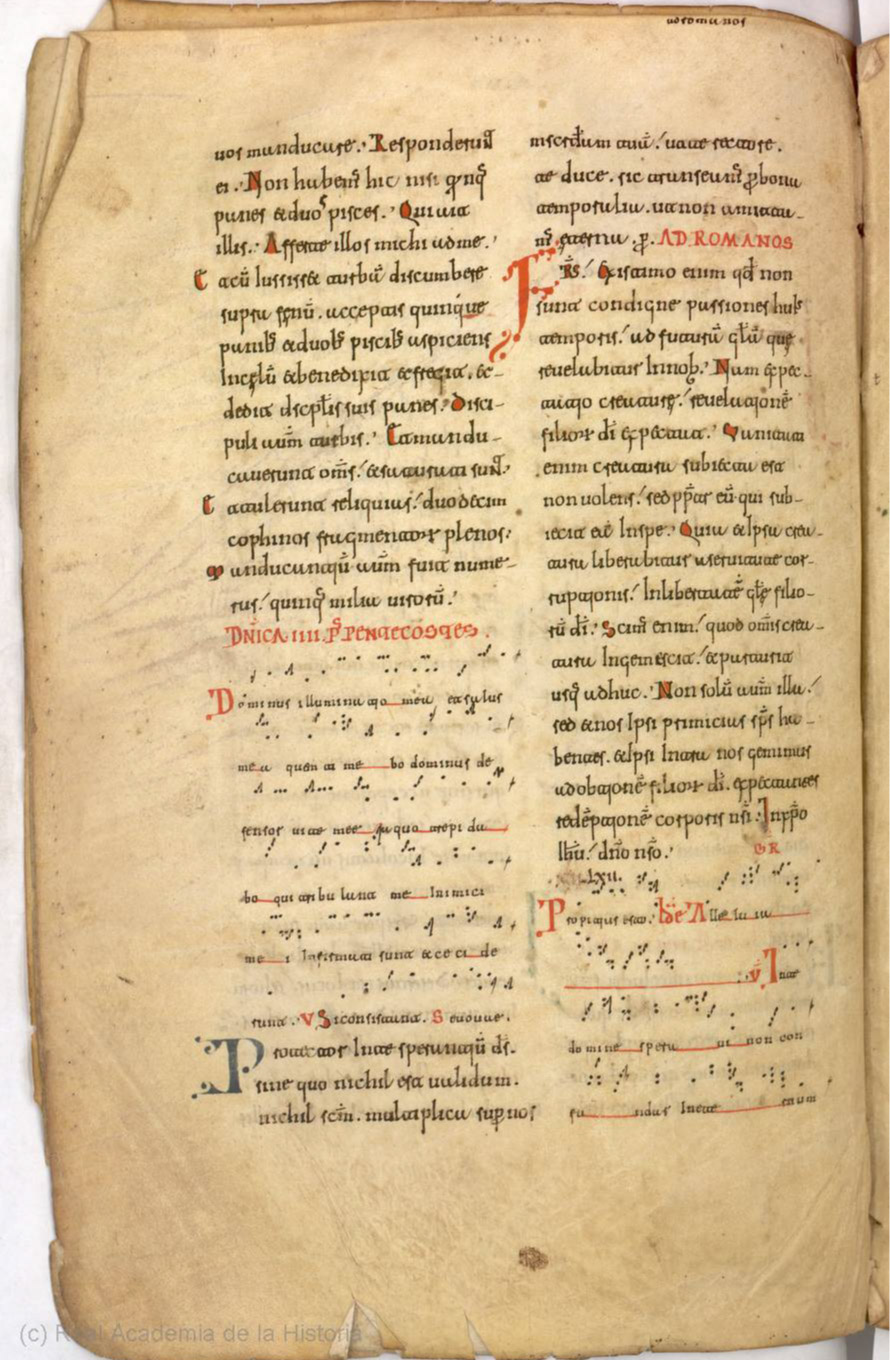 uos manducare. Responderunt
ei. Non habem̄ hic nisi qnq̄
panes & duos pisces. Qui ait
illis. Afferte illos michi ad me.
Et cū iussiss& turbā discumbere
supra fenū. acceptis quinque
panib; & duob; piscib; aspiciens
In celū & benedixit & fregit. &-
dedit discplis suis panes. Disci-
puli aūm turbis. Et mandu-
cauerunt om̄s. & saturati sun̄t.
Et tulerunt reliquias. duodecim
cophinos fragmentor plenos.
Manducantiū aūm fuit nume-
rus. quinq; milia uirorū.
DN̄ICA IIII P̄ PENTECOSTES.
Dominus illuminatio mea et salus
mea quem timebo dominus de
fensor uite mee a quo trepidabo
qui tribulant me Inimici
mei Infirmati sunt & cecide
runt. V Si consistant. Seuouae.
Protector Inte sperantiū ds̄.
sine quo nichil est ualidum.
nichil sc̄m. multiplica sup nos
miscdam tuā. ut te rectore.
te duce. sic transeam̄ p bona
temporalia. ut non amitta-
m̄ eterna. p. AD ROMANOS
FRS̄. Existimo enim qd̄ non
sunt condigne passiones hui;
temporis. ad futurā glā que
reuelabitur In nob. Nam expec-
tatio creature. reuelationē
filior dī expectat. Uanitati
enim creatura subiecta est
non uolens. sed pp̄ter eū qui sub-
iecit eā Inspe. Quia & Ipsa crea-
tura liberabitur aseruitute cor-
ruptionis. In libertatē gle filio-
rū dī. Scim̄ enim. quod omis crea-
tura Ingemescit. & parturit
usq; adhuc. Non solū aūm illa.
sed & nos Ipsi primicias sp̄s ha-
bentes. & Ipsi Intra nos gemimus
adobtionē filior dī. expectantes
redēptionē corporis nr̄i. In xp̄o
Ih̄u. dn̄o nr̄o. GR
LXII.
Propitius esto. Alleluia
V In te
domine speraui non con
fundar Ineternum
ad romanos
(c) Real Academia de la Historia